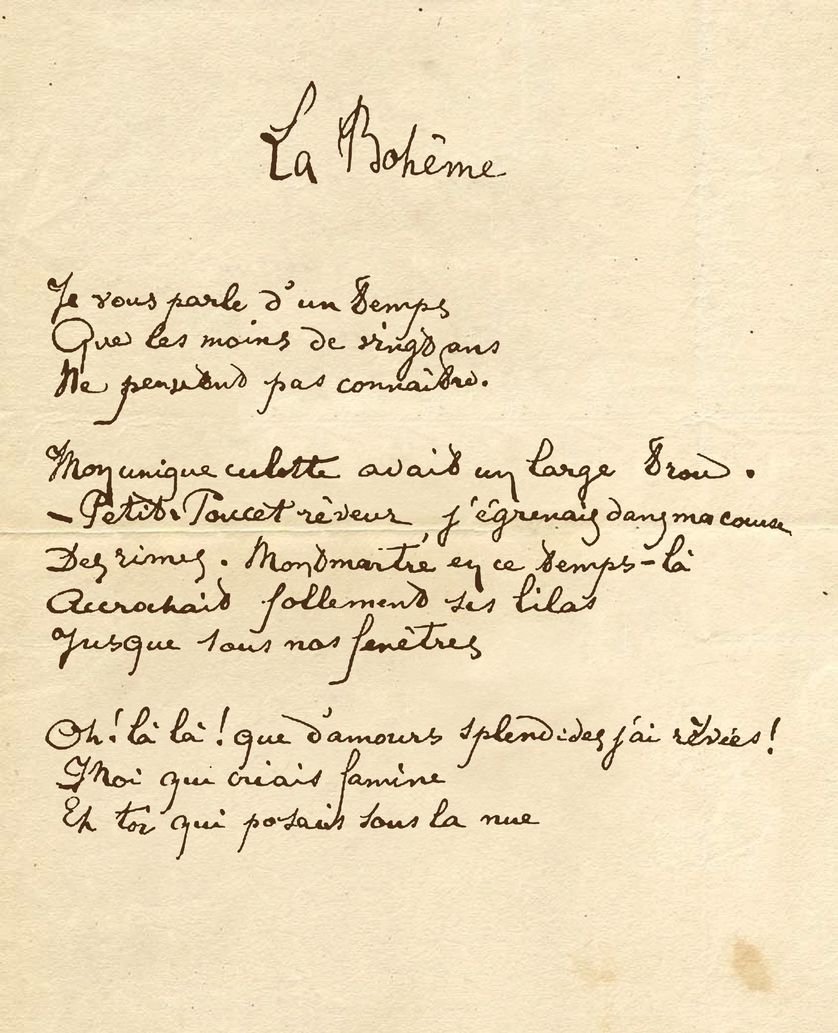 La Bohême
Je vous parle d'un temps
Que les moins de vingt ans
Ne peuvent pas connaître.
Mon unique culotte avait un large trou.
- Petit-Poucet rêveur j'égrenais dans ma course
Des rimes. Montmartre en ce temps-là
Accrochait follement ses lilas
Jusque sous nos fenêtres
Oh! là là! que d'amours splendides j'ai rêvées!
Moi qui criais famine
Et toi qui posais sous la nue